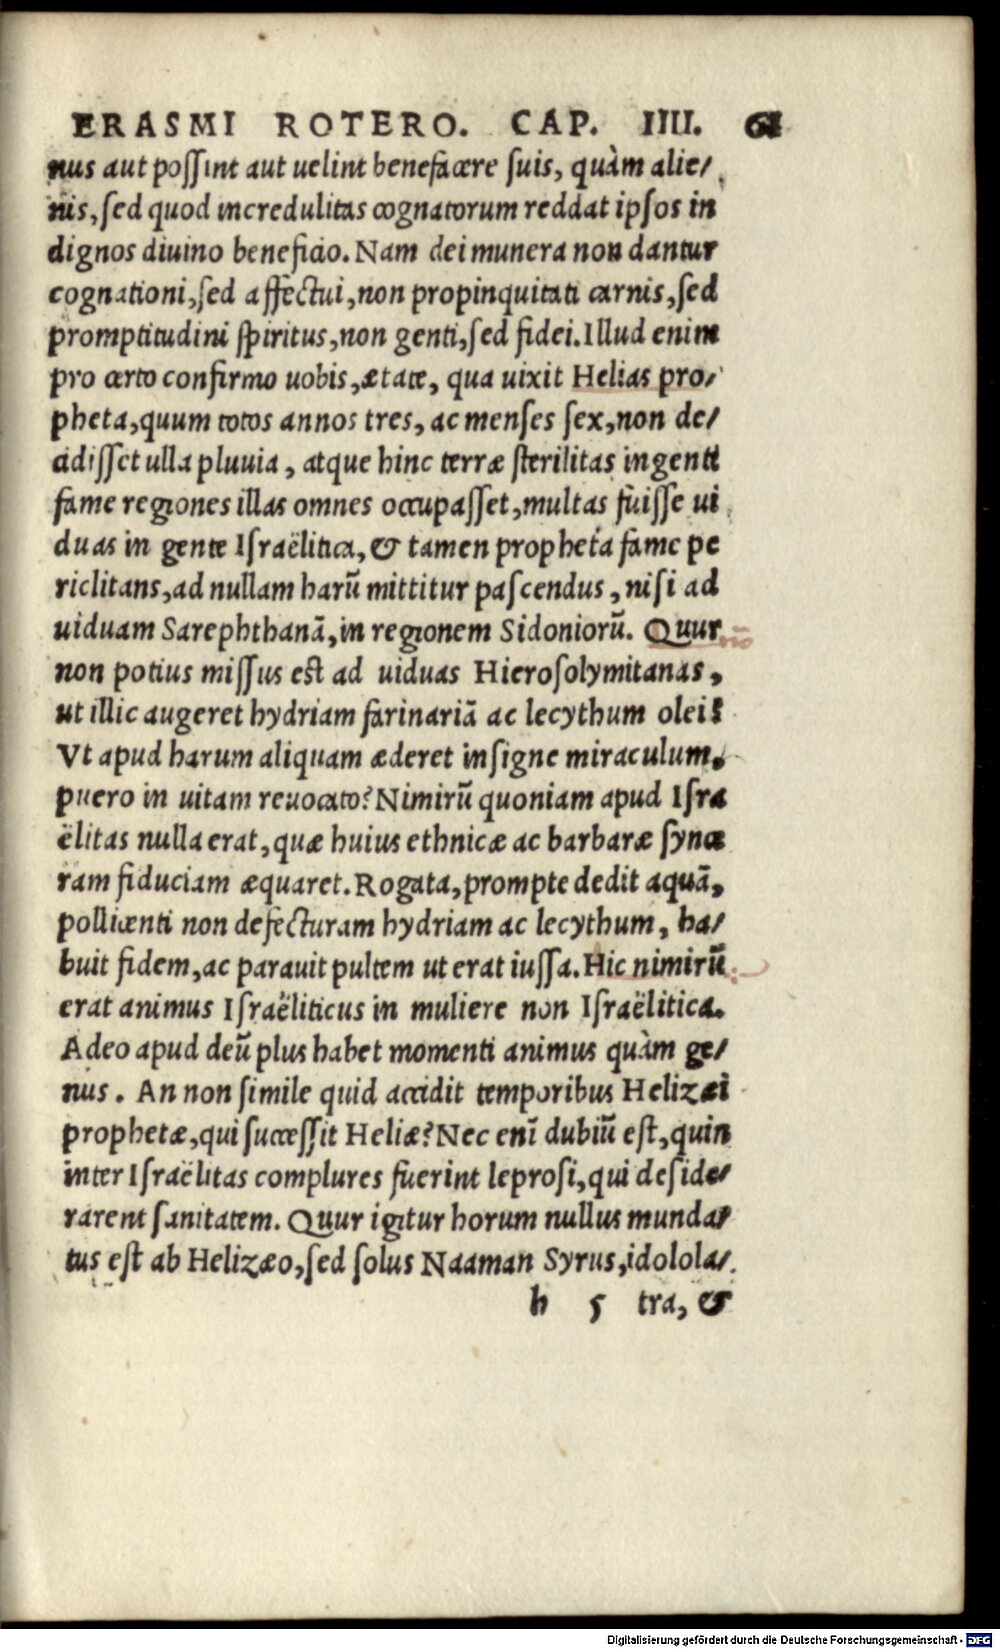 ERASMI ROTERO. CAP. IIII. 61
nus aut poſſint aut uelint benefacere ſuis, quàm alie/
nis, ſed quod incredulitas cognatorum reddat ipſos in
dignos diuino beneficio. Nam dei munera non dantur
cognationi, ſed affectui, non propinquitati carnis, ſed
promptitudini ſpiritus, non genti, ſed fidei. Illud enim
pro certo confirmo uobis, ætate, qua uixit Helias pro/
pheta, quum totos annos tres, ac menſes ſex, non de/
cidiſſet ulla pluuia, atque hinc terræ ſterilitas ingenti
fame regiones illas omnes occupaſſet, multas fuiſſe ui
duas in gente Iſraëlitica, & tamen propheta fame pe
riclitans, ad nullam harū mittitur paſcendus, niſi ad
uiduam Sarephthanā, in regionem Sidoniorū. Quur
non potius miſſus eſt ad uiduas Hieroſolymitanas,
ut illic augeret hydriam farinariā ac lecythum olei?
Vt apud harum aliquam æderet inſigne miraculum,
puero in uitam reuocato? Nimirū quoniam apud Iſra
ëlitas nulla erat, quæ huius ethnicæ ac barbaræ ſynce
ram fiduciam æquaret. Rogata, prompte dedit aquā,
pollicenti non defecturam hydriam ac lecythum, ha/
buit fidem, ac parauit pultem ut erat iuſſa. Hic nimirū
erat animus Iſraëliticus in muliere non Iſraëlitica.
Adeo apud deū plus habet momenti animus quàm ge/
nus. An non ſimile quid accidit temporibus Helizæi
prophetæ, qui ſucceſſit Heliæ? Nec enī dubiū eſt, quin
inter Iſraëlitas complures fuerint leproſi, qui deſide/
rarent ſanitatem. Quur igitur horum nullus munda/
tus eſt ab Helizæo, ſed ſolus Naaman Syrus, idolola/
h 5 tra, &
Digitalisierung gefördert durch die Deutsche Forschungsgemeinschaft - DFG